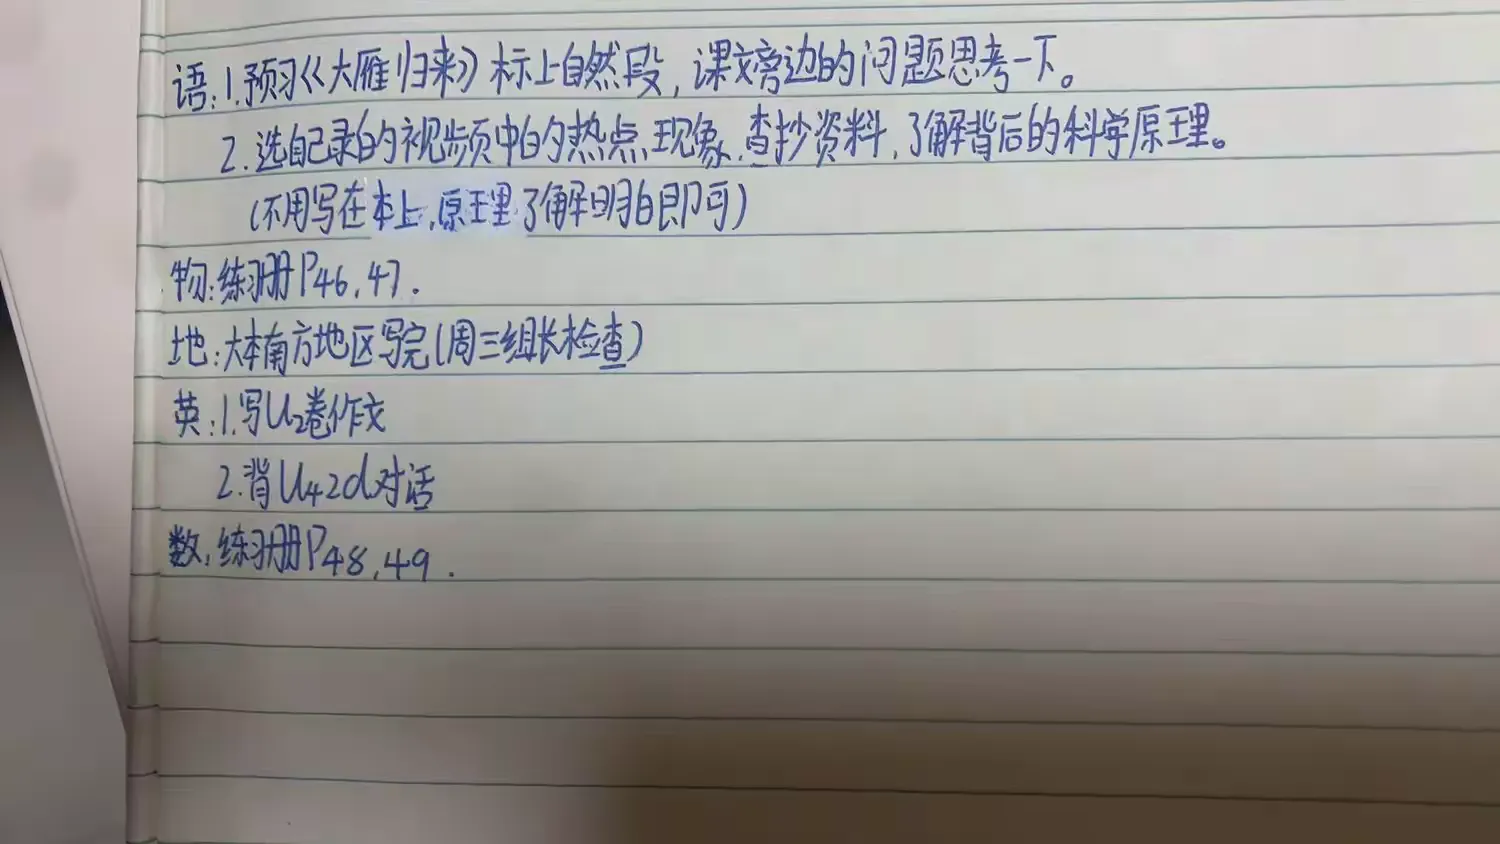 语:1.预习《大雁归来》标上自然段,课文旁边的问题思考一下。
2.选自己录的视频中的热点现象,查抄资料,了解背后的科学原理。
(不用写在本上,原理了解明白即可)
物:练习册P46,47.
地:大本南方地区写完(周三组长检查)
英:1.写U2卷作文
2.背U4 2d对话
数:练习册P48,49.